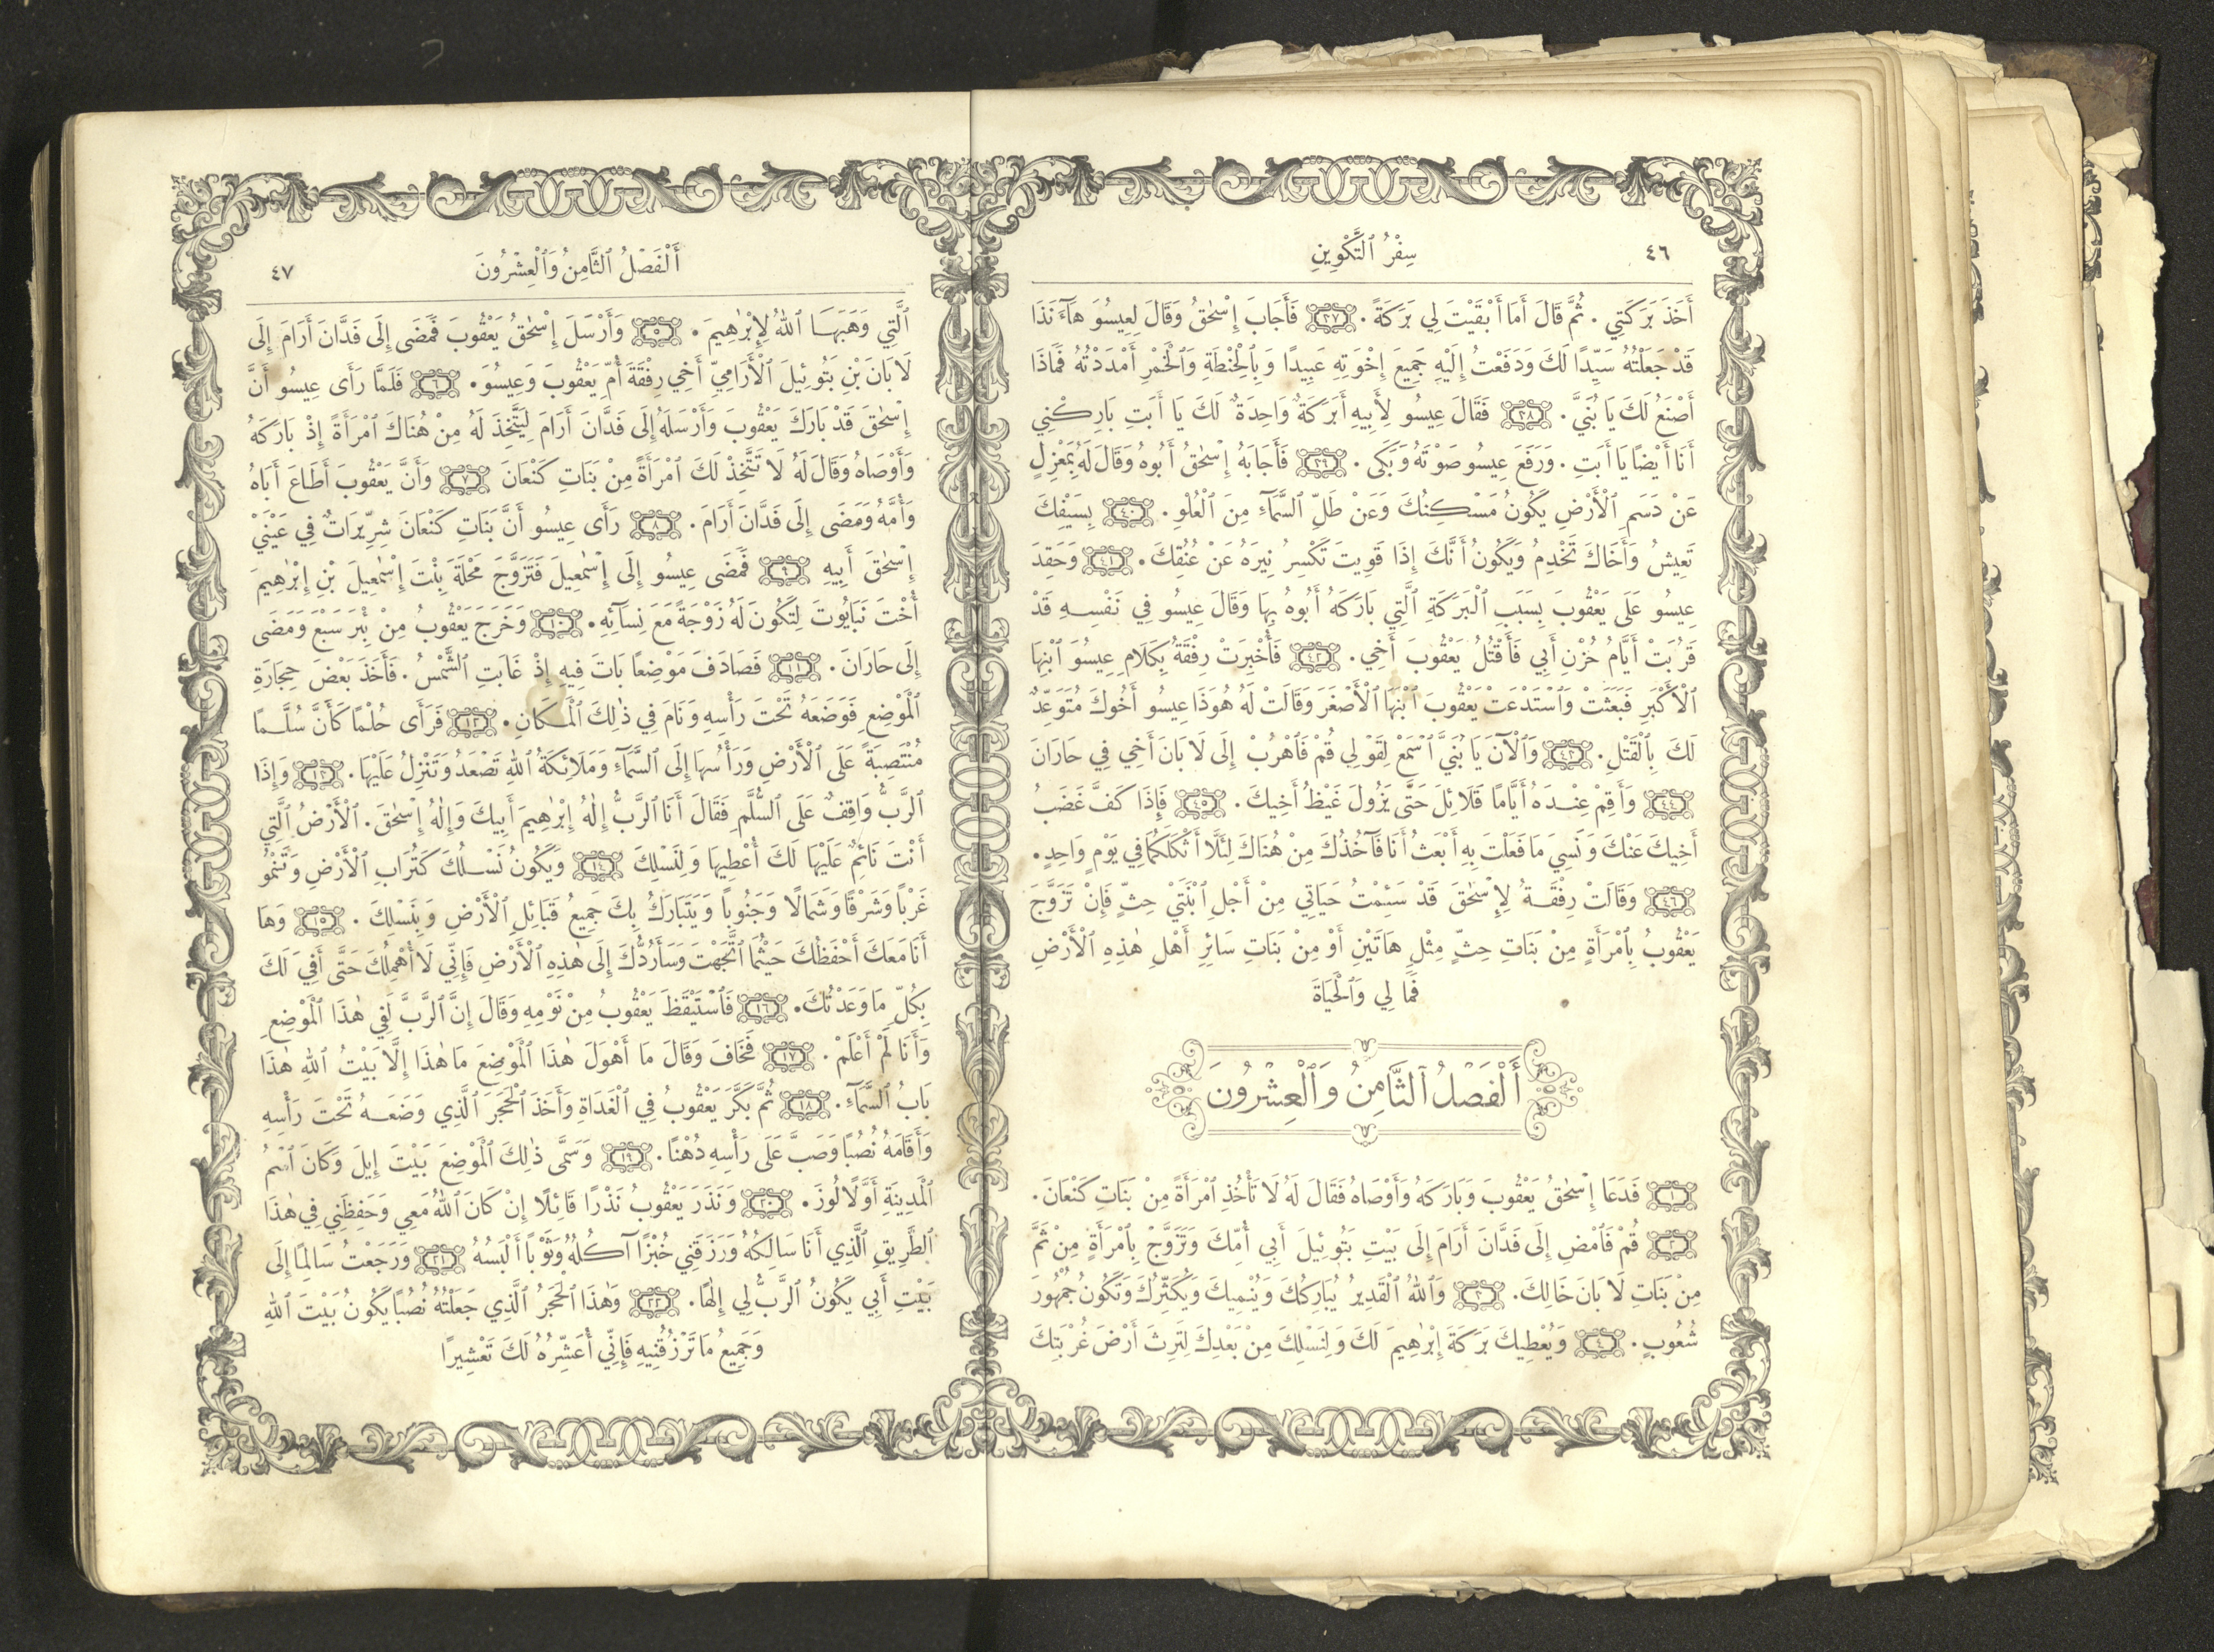 ٤٦
سِفْرُ ٱلتَّكْوِينِ
أَخَذَ بَرَكَتِي . ثُمَّ قَالَ أَمَا أَبْقَيْتَ لِي بَرَكَةً . ٣٧ فَأَجَابَ إِسْحٰقُ وَقَالَ لِعِيسُوَ هَآءَنَذَا
قَدْ جَعَلْتُهُ سَيِّدًا لَكَ وَدَفَعْتُ إِلَيْهِ جَمِيعَ إِخْوَتِهِ عَبِيدًا وَبِٱلْحِنْطَةِ وَٱلْخَمْرِ أَمْدَدْتُهُ فَمَاذَا
أَصْنَعُ لَكَ يَا بُنَيَّ . ٣٨ فَقَالَ عِيسُو لِأَبِيهِ أَبَرَكَةٌ وَاحِدَةٌ لَكَ يَا أَبَتِ بَارِكْنِي
أَنَا أَيْضًا يَا أَبَتِ . وَرَفَعَ عِيسُو صَوْتَهُ وَبَكَى . ٣٩ فَأَجَابَهُ إِسْحٰقُ أَبُوهُ وَقَالَ لَهُ بِمَعْزِلٍ
عَنْ دَسَمِ ٱلْأَرْضِ يَكُونُ مَسْكِنُكَ وَعَنْ طَلِّ ٱلسَّمَآءِ مِنَ ٱلْعُلْوِ . ٤٠ بِسَيْفِكَ
تَعِيشُ وَأَخَاكَ تَخْدِمُ وَيَكُونُ أَنَّكَ إِذَا قَوِيتَ تَكْسِرُ نِيرَهُ عَنْ عُنُقِكَ . ٤١ وَحَقِدَ
عِيسُو عَلَى يَعْقُوبَ بِسَبَبِ ٱلْبَرَكَةِ ٱلَّتِي بَارَكَهُ أَبُوهُ بِهَا وَقَالَ عِيسُو فِي نَفْسِهِ قَدْ
قَرُبَتْ أَيَّامُ حُزْنِ أَبِي فَأَقْتُلُ يَعْقُوبَ أَخِي . ٤٢ فَأُخْبِرَتْ رِفْقَةُ بِكَلَامِ عِيسُوَ ٱبْنِهَا
ٱلْأَكْبَرِ فَبَعَثَتْ وَٱسْتَدْعَتْ يَعْقُوبَ ٱبْنَهَا ٱلْأَصْغَرَ وَقَالَتْ لَهُ هُوَذَا عِيسُو أَخُوكَ مُتَوَعِّدٌ
لَكَ بِٱلْقَتْلِ . ٤٣ وَٱلْآنَ يَا بُنَيَّ ٱسْمَعْ لِقَوْلِي قُمْ فَٱهْرُبْ إِلَى لَابَانَ أَخِي فِي حَارَانَ
٤٤ وَأَقِمْ عِنْدَهُ أَيَّامًا قَلَائِلَ حَتَّى يَزُولَ غَيْظُ أَخِيكَ . ٤٥ فَإِذَا كَفَّ غَضَبُ
أَخِيكَ عَنْكَ وَنَسِيَ مَا فَعَلْتَ بِهِ أَبْعَثُ أَنَا فَآخُذُكَ مِنْ هُنَاكَ لِئَلَّا أَثْكَلَكُمَا فِي يَوْمٍ وَاحِدٍ .
٤٦ وَقَالَتْ رِفْقَةُ لِإِسْحٰقَ قَدْ سَئِمْتُ حَيَاتِي مِنْ أَجْلِ ٱبْنَتَيْ حِثٍّ فَإِنْ تَزَوَّجَ
يَعْقُوبُ بِٱمْرَأَةٍ مِنْ بَنَاتِ حِثٍّ مِثْلِ هَاتَيْنِ أَوْ مِنْ بَنَاتِ سَائِرِ أَهْلِ هٰذِهِ ٱلْأَرْضِ
فَمَا لِي وَٱلْحَيَاةَ
أَلْفَصْلُ ٱلثَّامِنُ وَٱلْعِشْرُونَ
١ فَدَعَا إِسْحٰقُ يَعْقُوبَ وَبَارَكَهُ وَأَوْصَاهُ فَقَالَ لَهُ لَا تَأْخُذِ ٱمْرَأَةً مِنْ بَنَاتِ كَنْعَانَ .
٢ قُمْ فَٱمْضِ إِلَى فَدَّانَ أَرَامَ إِلَى بَيْتِ بَتُوئِيلَ أَبِي أُمِّكَ وَتَزَوَّجْ بِٱمْرَأَةٍ مِنْ ثَمَّ
مِنْ بَنَاتِ لَابَانَ خَالِكَ . ٣ وَٱللهُ ٱلْقَدِيرُ يُبَارِكُكَ وَيُنْمِيكَ وَيُكَثِّرُكَ وَتَكُونُ جُمْهُورَ
شُعُوبٍ . ٤ وَيُعْطِيكَ بَرَكَةَ إِبْرٰهِيمَ لَكَ وَلِنَسْلِكَ مِنْ بَعْدِكَ لِتَرِثَ أَرْضَ غُرْبَتِكَ
أَلْفَصْلُ ٱلثَّامِنُ وَٱلْعِشْرُونَ
٤٧
ٱلَّتِي وَهَبَهَا ٱللهُ لِإِبْرٰهِيمَ . ٥ وَأَرْسَلَ إِسْحٰقُ يَعْقُوبَ فَمَضَى إِلَى فَدَّانَ أَرَامَ إِلَى
لَابَانَ بْنِ بَتُوئِيلَ ٱلْأَرَامِيِّ أَخِي رِفْقَةَ أُمِّ يَعْقُوبَ وَعِيسُوَ . ٦ فَلَمَّا رَأَى عِيسُو أَنَّ
إِسْحٰقَ قَدْ بَارَكَ يَعْقُوبَ وَأَرْسَلَهُ إِلَى فَدَّانَ أَرَامَ لِيَتَّخِذَ لَهُ مِنْ هُنَاكَ ٱمْرَأَةً إِذْ بَارَكَهُ
وَأَوْصَاهُ وَقَالَ لَهُ لَا تَتَّخِذْ لَكَ ٱمْرَأَةً مِنْ بَنَاتِ كَنْعَانَ ٧ وَأَنَّ يَعْقُوبَ أَطَاعَ أَبَاهُ
وَأُمَّهُ وَمَضَى إِلَى فَدَّانَ أَرَامَ . ٨ رَأَى عِيسُو أَنَّ بَنَاتِ كَنْعَانَ شِرِّيرَاتٌ فِي عَيْنَيْ
إِسْحٰقَ أَبِيهِ ٩ فَمَضَى عِيسُو إِلَى إِسْمٰعِيلَ فَتَزَوَّجَ مَحْلَةَ بِنْتَ إِسْمٰعِيلَ بْنِ إِبْرٰهِيمَ
أُخْتَ نَبَايُوتَ لِتَكُونَ لَهُ زَوْجَةً مَعَ نِسَآئِهِ . ١٠ وَخَرَجَ يَعْقُوبُ مِنْ بِئْرَ سَبْعَ وَمَضَى
إِلَى حَارَانَ . ١١ فَصَادَفَ مَوْضِعًا بَاتَ فِيهِ إِذْ غَابَتِ ٱلشَّمْسُ . فَأَخَذَ بَعْضَ حِجَارَةِ
ٱلْمَوْضِعِ فَوَضَعَهُ تَحْتَ رَأْسِهِ وَنَامَ فِي ذٰلِكَ ٱلْمَكَانِ . ١٢ فَرَأَى حُلْمًا كَأَنَّ سُلَّمًا
مُنْتَصِبَةً عَلَى ٱلْأَرْضِ وَرَأْسُهَا إِلَى ٱلسَّمَآءِ وَمَلَائِكَةُ ٱللهِ تَصْعَدُ وَتَنْزِلُ عَلَيْهَا . ١٣ وَإِذَا
ٱلرَّبُّ وَاقِفٌ عَلَى ٱلسُّلَّمِ فَقَالَ أَنَا ٱلرَّبُّ إِلٰهُ إِبْرٰهِيمَ أَبِيكَ وَإِلٰهُ إِسْحٰقَ . ٱلْأَرْضُ ٱلَّتِي
أَنْتَ نَائِمٌ عَلَيْهَا لَكَ أُعْطِيهَا وَلِنَسْلِكَ ١٤ وَيَكُونُ نَسْلُكَ كَتُرَابِ ٱلْأَرْضِ وَتَنْمُو
غَرْبًا وَشَرْقًا وَشَمَالًا وَجَنُوبًا وَيَتَبَارَكُ بِكَ جَمِيعُ قَبَائِلِ ٱلْأَرْضِ وَبِنَسْلِكَ . ١٥ وَهَا
أَنَا مَعَكَ أَحْفَظُكَ حَيْثُمَا ٱتَّجَهْتَ وَسَأَرُدُّكَ إِلَى هٰذِهِ ٱلْأَرْضِ فَإِنِّي لَا أُهْمِلُكَ حَتَّى أَفِيَ لَكَ
بِكُلِّ مَا وَعَدْتُكَ . ١٦ فَٱسْتَيْقَظَ يَعْقُوبُ مِنْ نَوْمِهِ وَقَالَ إِنَّ ٱلرَّبَّ لَفِي هٰذَا ٱلْمَوْضِعِ
وَأَنَا لَمْ أَعْلَمْ . ١٧ فَخَافَ وَقَالَ مَا أَهْوَلَ هٰذَا ٱلْمَوْضِعَ مَا هٰذَا إِلَّا بَيْتُ ٱللهِ هٰذَا
بَابُ ٱلسَّمَآءِ . ١٨ ثُمَّ بَكَّرَ يَعْقُوبُ فِي ٱلْغَدَاةِ وَأَخَذَ ٱلْحَجَرَ ٱلَّذِي وَضَعَهُ تَحْتَ رَأْسِهِ
وَأَقَامَهُ نُصُبًا وَصَبَّ عَلَى رَأْسِهِ دُهْنًا . ١٩ وَسَمَّى ذٰلِكَ ٱلْمَوْضِعَ بَيْتَ إِيلَ وَكَانَ ٱسْمُ
ٱلْمَدِينَةِ أَوَّلًا لُوزَ . ٢٠ وَنَذَرَ يَعْقُوبُ نَذْرًا قَائِلًا إِنْ كَانَ ٱللهُ مَعِي وَحَفِظَنِي فِي هٰذَا
ٱلطَّرِيقِ ٱلَّذِي أَنَا سَالِكُهُ وَرَزَقَنِي خُبْزًا آكُلُهُ وَثَوْبًا أَلْبَسُهُ ٢١ وَرَجَعْتُ سَالِمًا إِلَى
بَيْتِ أَبِي يَكُونُ ٱلرَّبُّ لِي إِلٰهًا . ٢٢ وَهٰذَا ٱلْحَجَرُ ٱلَّذِي جَعَلْتُهُ نُصُبًا يَكُونُ بَيْتَ ٱللهِ
وَجَمِيعُ مَا تَرْزُقُنِيهِ فَإِنِّي أُعَشِّرُهُ لَكَ تَعْشِيرًا